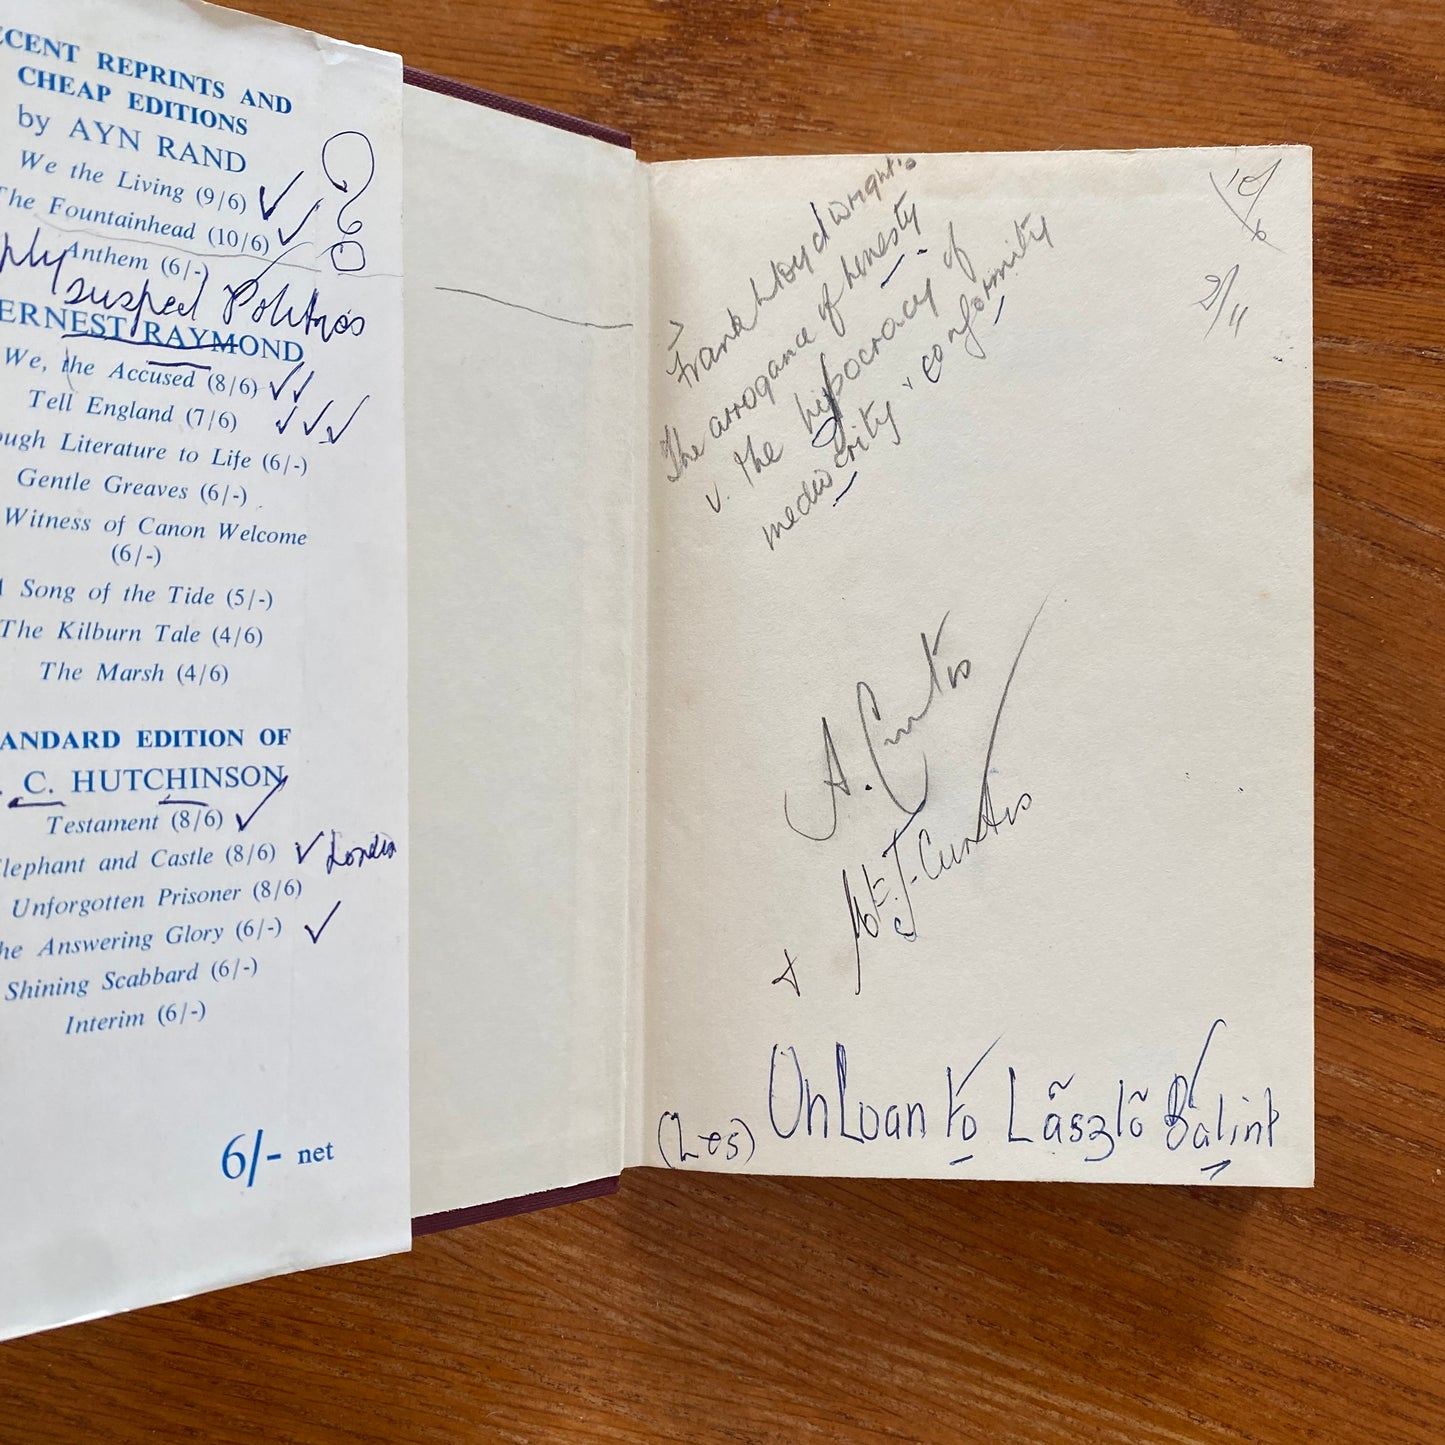 ECENT REPRINTS AND
CHEAP EDITIONS
by AYN RAND
We the Living (9/6)
The Fountainhead (10/6)
Anthem (6/-)
ply suspect Politics
ERNEST RAYMOND
We, the Accused (8/6)
Tell England (7/6)
ough Literature to Life (6/-)
Gentle Greaves (6/-)
Witness of Canon Welcome
(6/-)
A Song of the Tide (5/-)
The Kilburn Tale (4/6)
The Marsh (4/6)
ANDARD EDITION OF
. C. HUTCHINSON
Testament (8/6)
Elephant and Castle (8/6) London
Unforgotten Prisoner (8/6)
he Answering Glory (6/-)
Shining Scabbard (6/-)
Interim (6/-)
6/- net
10/6
2/11
Frank Lloyd Wright's
The arrogance of honesty
v. the hypocracy of
mediocrity + conformity
A. Curtis
+ M.E.J. Curtis
(Les) On Loan to László Bálint